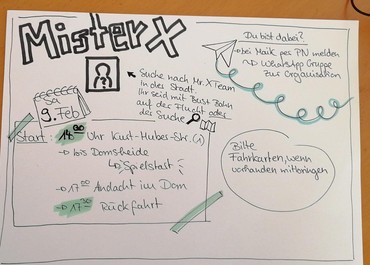 Mister X
Suche nach Mr. X Team
in der Stadt.
Ihr seid mit Bus + Bahn
auf der Flucht oder
der Suche
Du bist dabei?
→ bei Maik per PN melden
→ WhatsApp Gruppe
zur Organisation
Sa
9. Feb
Start: 14⁰⁰ Uhr Kurt-Huber-Str. (1)
→ bis Domsheide
↳ Spielstart
→ 17⁰⁰ Andacht im Dom
→ 17³⁰ Rückfahrt
Bitte
Fahrkarten, wenn
vorhanden mitbringen